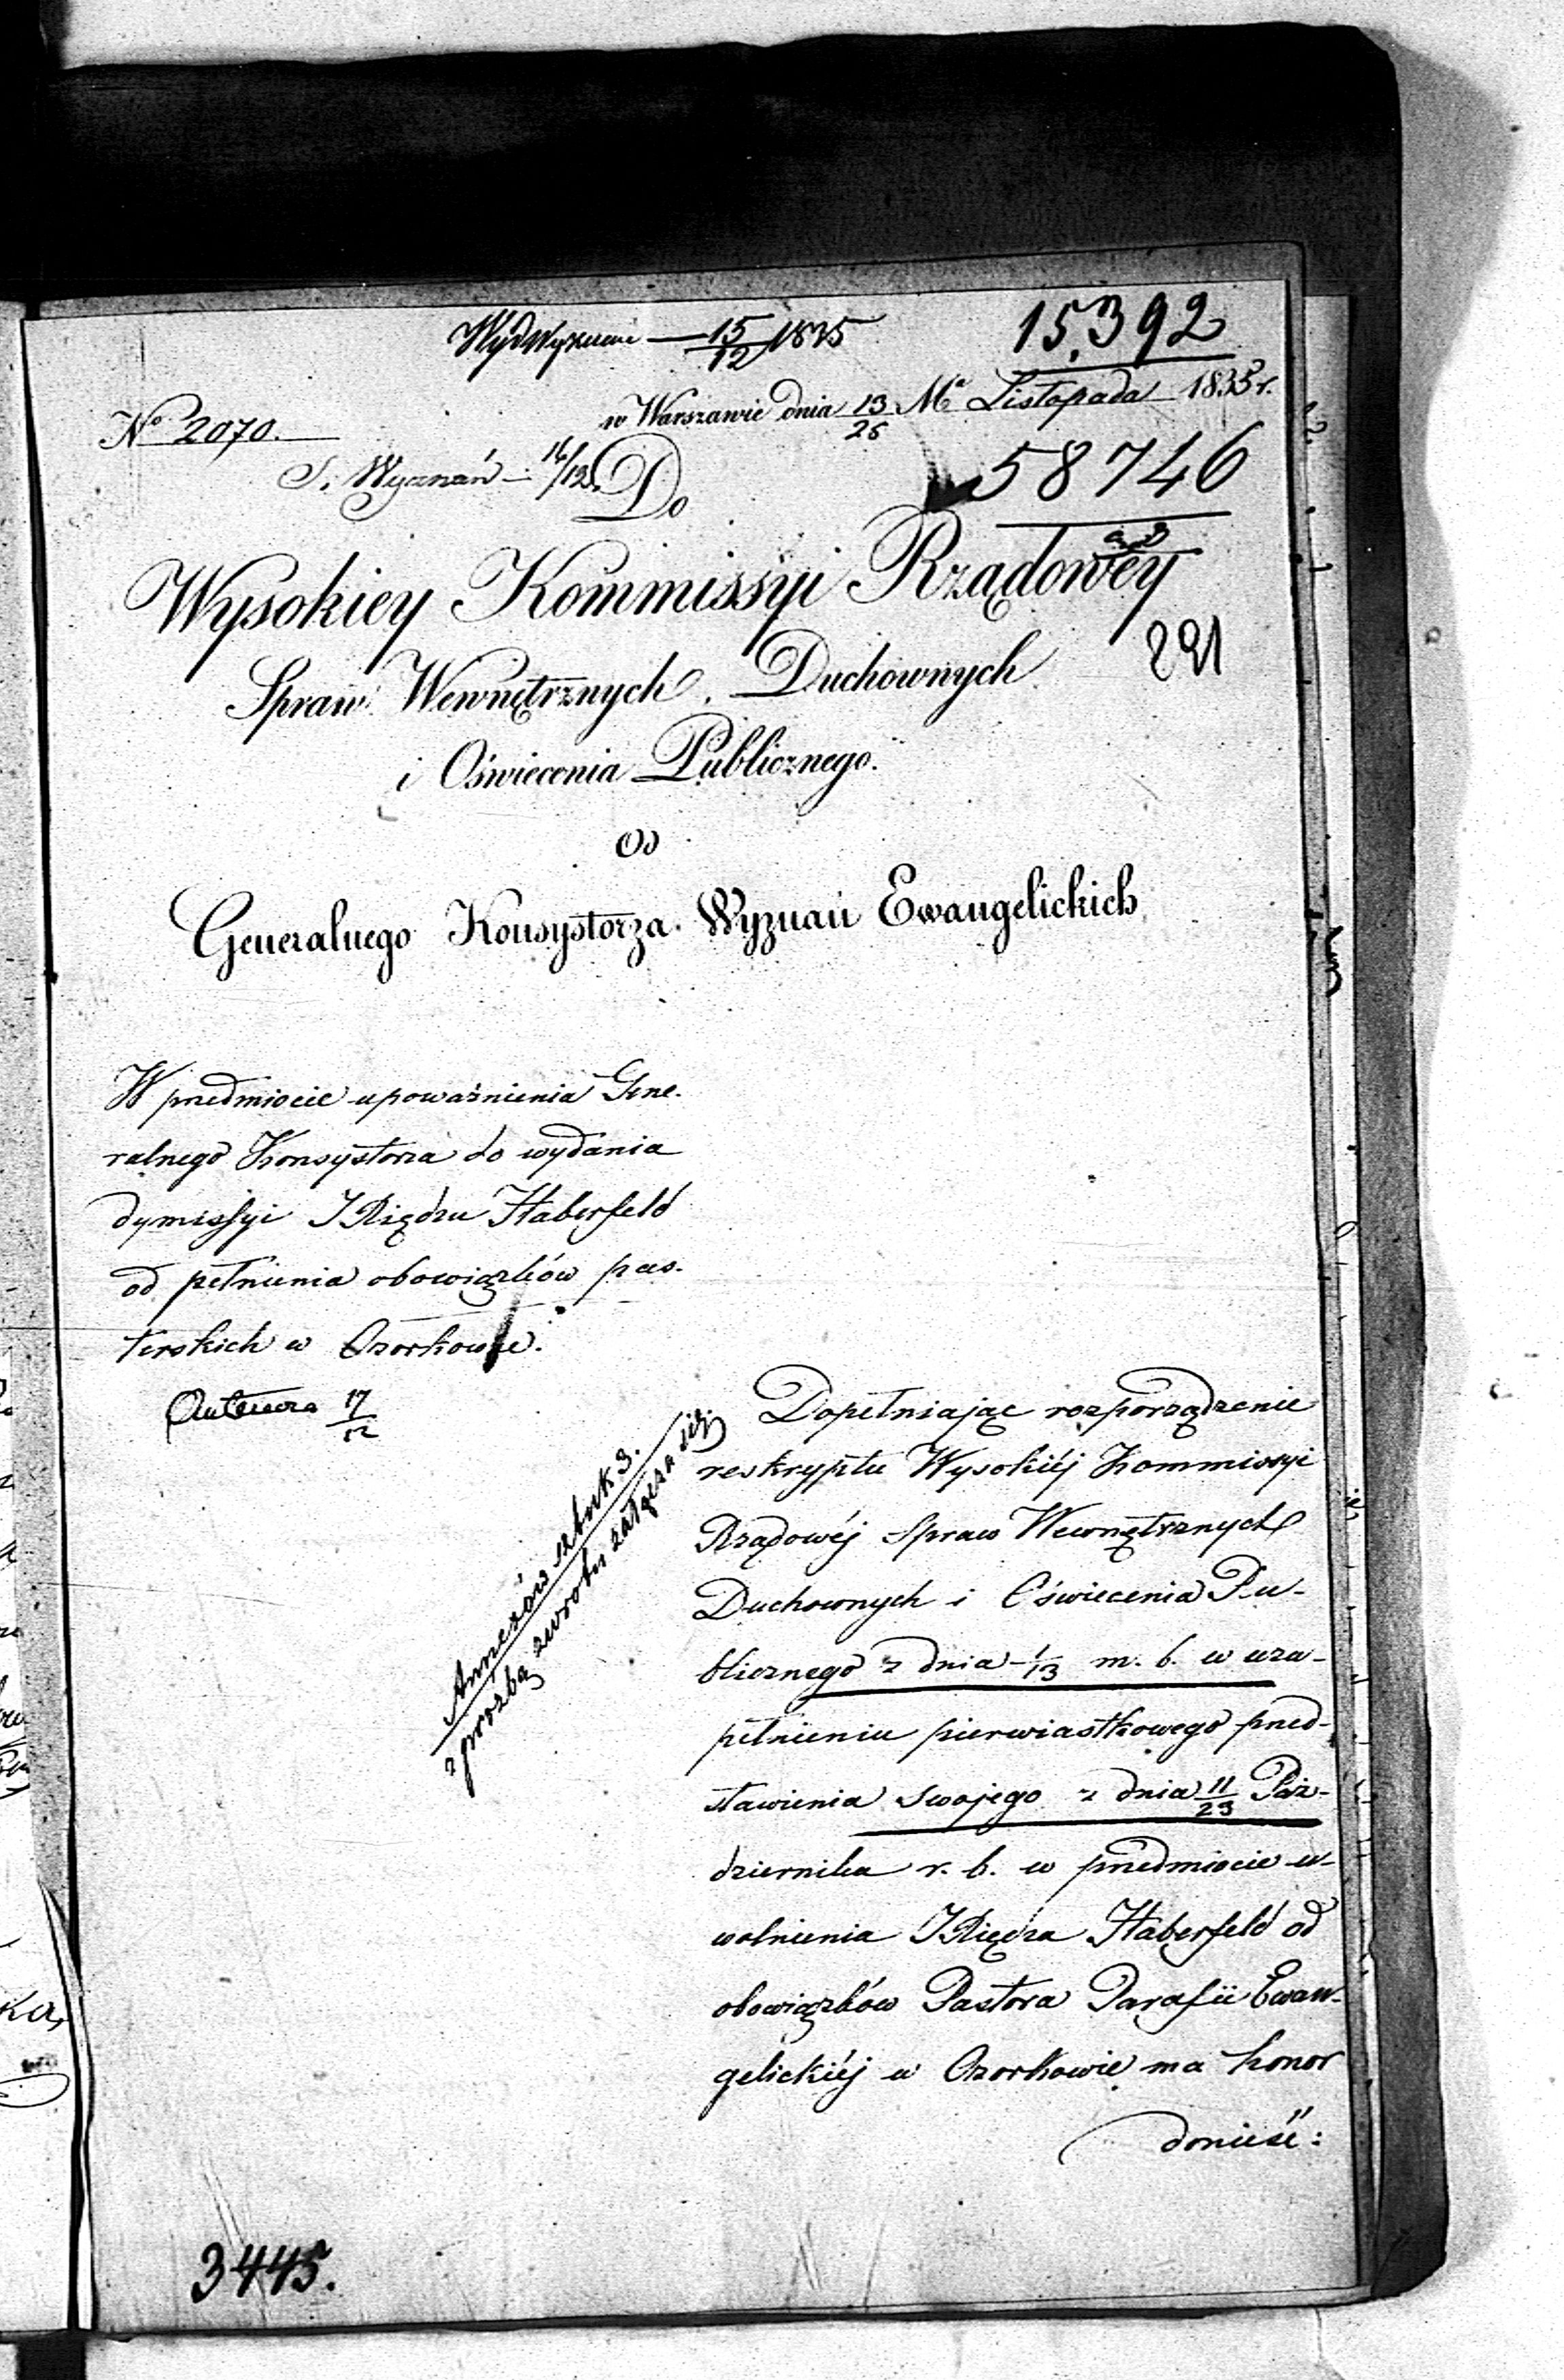 Wyd Wyznań — 15/12 1835
15,392
w Warszawie dnia 13/25 Mca Listopada 1835 r.
No 2070.
S. Wyznań – 16/12
58746
Do
Wysokiey Kommissyi Rządowey
221
Spraw Wewnętrznych, Duchownych
i Oświecenia Publicznego.
Od
Generalnego Konsystorza Wyznań Ewangelickich
W przedmiocie upoważnienia Gene-
ralnego Konsystorza do wydania
dymissyi JXiędzu Haberfeld
od pełnienia obowiązków pas-
terskich w Ozorkowie.
17/12
Annexów sztuk 3.
z prożbą zwrotu załącza się.
Dopełniając rozporządzenie
reskryptu Wysokiéj Kommissyi
Rządowéj Spraw Wewnętrznych
Duchownych i Oświecenia Pu-
blicznego z dnia 1/13 m. b. w uzu-
pełnieniu pierwiastkowego przed-
stawienia swojego z dnia 11/23 Paź-
dziernika r. b. w przedmiocie u-
wolnienia JXiędza Haberfeld od
obowiązków Pastora Parafii Ewan-
gelickiéj w Ozorkowie ma honor
donieść:
3445.